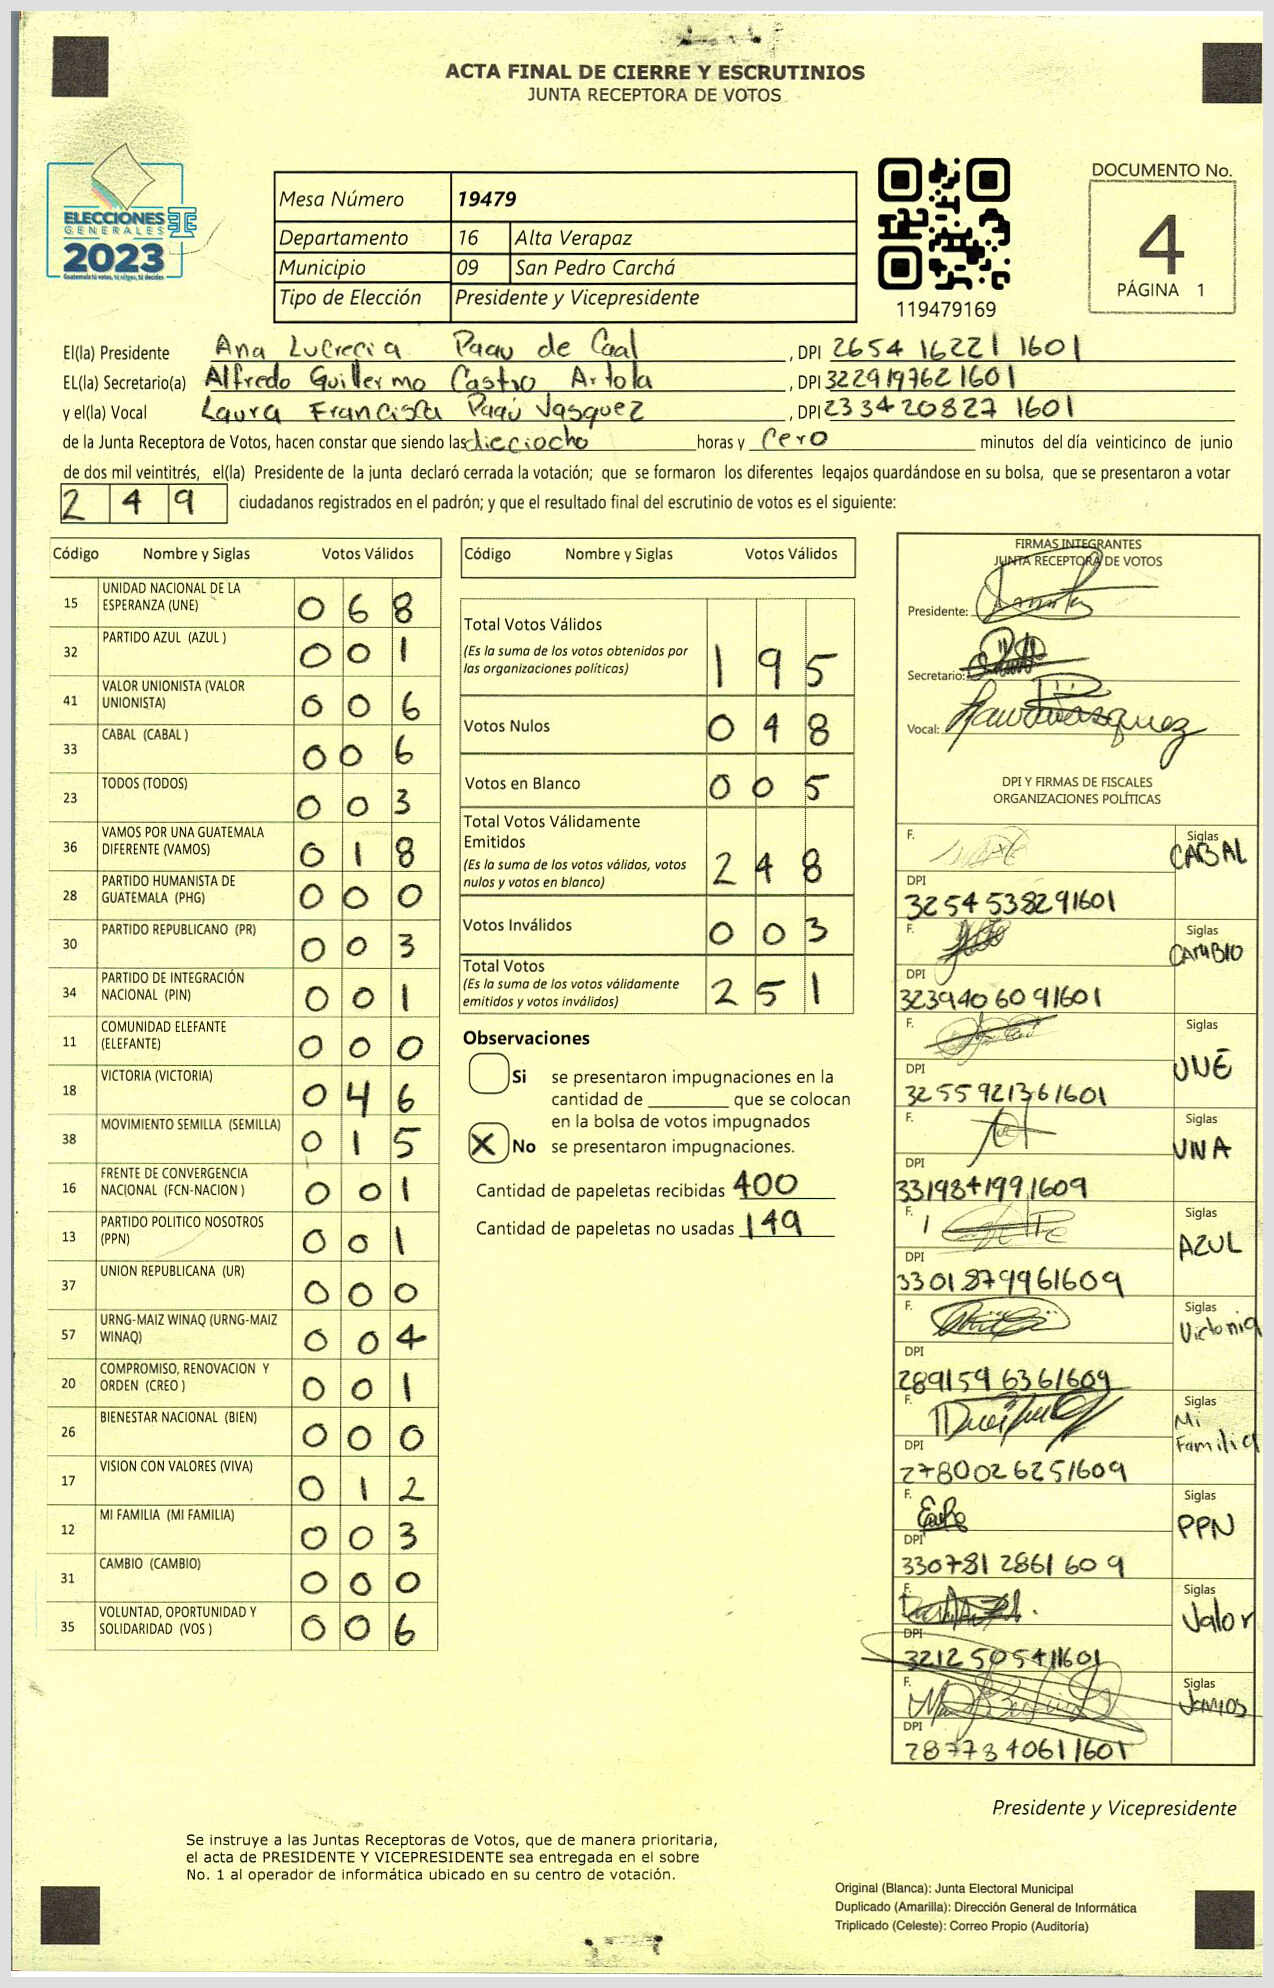 ACTA FINAL DE CIERRE Y ESCRUTINIOS
JUNTA RECEPTORA DE VOTOS
ELECCIONES
GENERALES
2023
Guatemala tú votas, tú eliges, tú decides
Mesa Número 19479
Departamento 16 Alta Verapaz
Municipio 09 San Pedro Carchá
Tipo de Elección Presidente y Vicepresidente
119479169
DOCUMENTO No.
4
PÁGINA 1
El(la) Presidente Ana Lucrecia Paau de Caal , DPI 2654 16221 1601
EL(la) Secretario(a) Alfredo Guillermo Castro Artola , DPI 3229197621601
y el(la) Vocal Laura Francisca Paau Vasquez , DPI 233420827 1601
de la Junta Receptora de Votos, hacen constar que siendo las dieciocho horas y cero minutos del día veinticinco de junio
de dos mil veintitrés, el(la) Presidente de la junta declaró cerrada la votación; que se formaron los diferentes legajos guardándose en su bolsa, que se presentaron a votar
249 ciudadanos registrados en el padrón; y que el resultado final del escrutinio de votos es el siguiente:
Código Nombre y Siglas Votos Válidos
15 UNIDAD NACIONAL DE LA ESPERANZA (UNE) 068
32 PARTIDO AZUL (AZUL ) 001
41 VALOR UNIONISTA (VALOR UNIONISTA) 006
33 CABAL (CABAL ) 006
23 TODOS (TODOS) 003
36 VAMOS POR UNA GUATEMALA DIFERENTE (VAMOS) 018
28 PARTIDO HUMANISTA DE GUATEMALA (PHG) 000
30 PARTIDO REPUBLICANO (PR) 003
34 PARTIDO DE INTEGRACIÓN NACIONAL (PIN) 001
11 COMUNIDAD ELEFANTE (ELEFANTE) 000
18 VICTORIA (VICTORIA) 046
38 MOVIMIENTO SEMILLA (SEMILLA) 015
16 FRENTE DE CONVERGENCIA NACIONAL (FCN-NACION ) 001
13 PARTIDO POLITICO NOSOTROS (PPN) 001
37 UNION REPUBLICANA (UR) 000
57 URNG-MAIZ WINAQ (URNG-MAIZ WINAQ) 004
20 COMPROMISO, RENOVACION Y ORDEN (CREO ) 001
26 BIENESTAR NACIONAL (BIEN) 000
17 VISION CON VALORES (VIVA) 012
12 MI FAMILIA (MI FAMILIA) 003
31 CAMBIO (CAMBIO) 000
35 VOLUNTAD, OPORTUNIDAD Y SOLIDARIDAD (VOS ) 006
Código Nombre y Siglas Votos Válidos
Total Votos Válidos
(Es la suma de los votos obtenidos por las organizaciones políticas) 195
Votos Nulos 048
Votos en Blanco 005
Total Votos Válidamente Emitidos
(Es la suma de los votos válidos, votos nulos y votos en blanco) 248
Votos Inválidos 003
Total Votos
(Es la suma de los votos válidamente emitidos y votos inválidos) 251
Observaciones
Si se presentaron impugnaciones en la
cantidad de ________ que se colocan
en la bolsa de votos impugnados
X No se presentaron impugnaciones.
Cantidad de papeletas recibidas 400
Cantidad de papeletas no usadas 149
FIRMAS INTEGRANTES
JUNTA RECEPTORA DE VOTOS
Presidente:
Secretario:
Vocal:
DPI Y FIRMAS DE FISCALES
ORGANIZACIONES POLÍTICAS
F. Siglas CABAL
DPI 3254538291601
F. Siglas CAMBIO
DPI 3239406091601
F. Siglas UNE
DPI 3255921361601
F. Siglas UNA
DPI 3319841991609
F. Siglas AZUL
DPI 3301879961609
F. Siglas Victoria
DPI 2891596361609
F. Siglas Mi Familia
DPI 2780026251609
F. Siglas PPN
DPI 3307812861609
F. Siglas Valor
DPI 3212505411601
F. Siglas Vamos
DPI 2877340611601
Presidente y Vicepresidente
Se instruye a las Juntas Receptoras de Votos, que de manera prioritaria,
el acta de PRESIDENTE Y VICEPRESIDENTE sea entregada en el sobre
No. 1 al operador de informática ubicado en su centro de votación.
Original (Blanca): Junta Electoral Municipal
Duplicado (Amarilla): Dirección General de Informática
Triplicado (Celeste): Correo Propio (Auditoría)